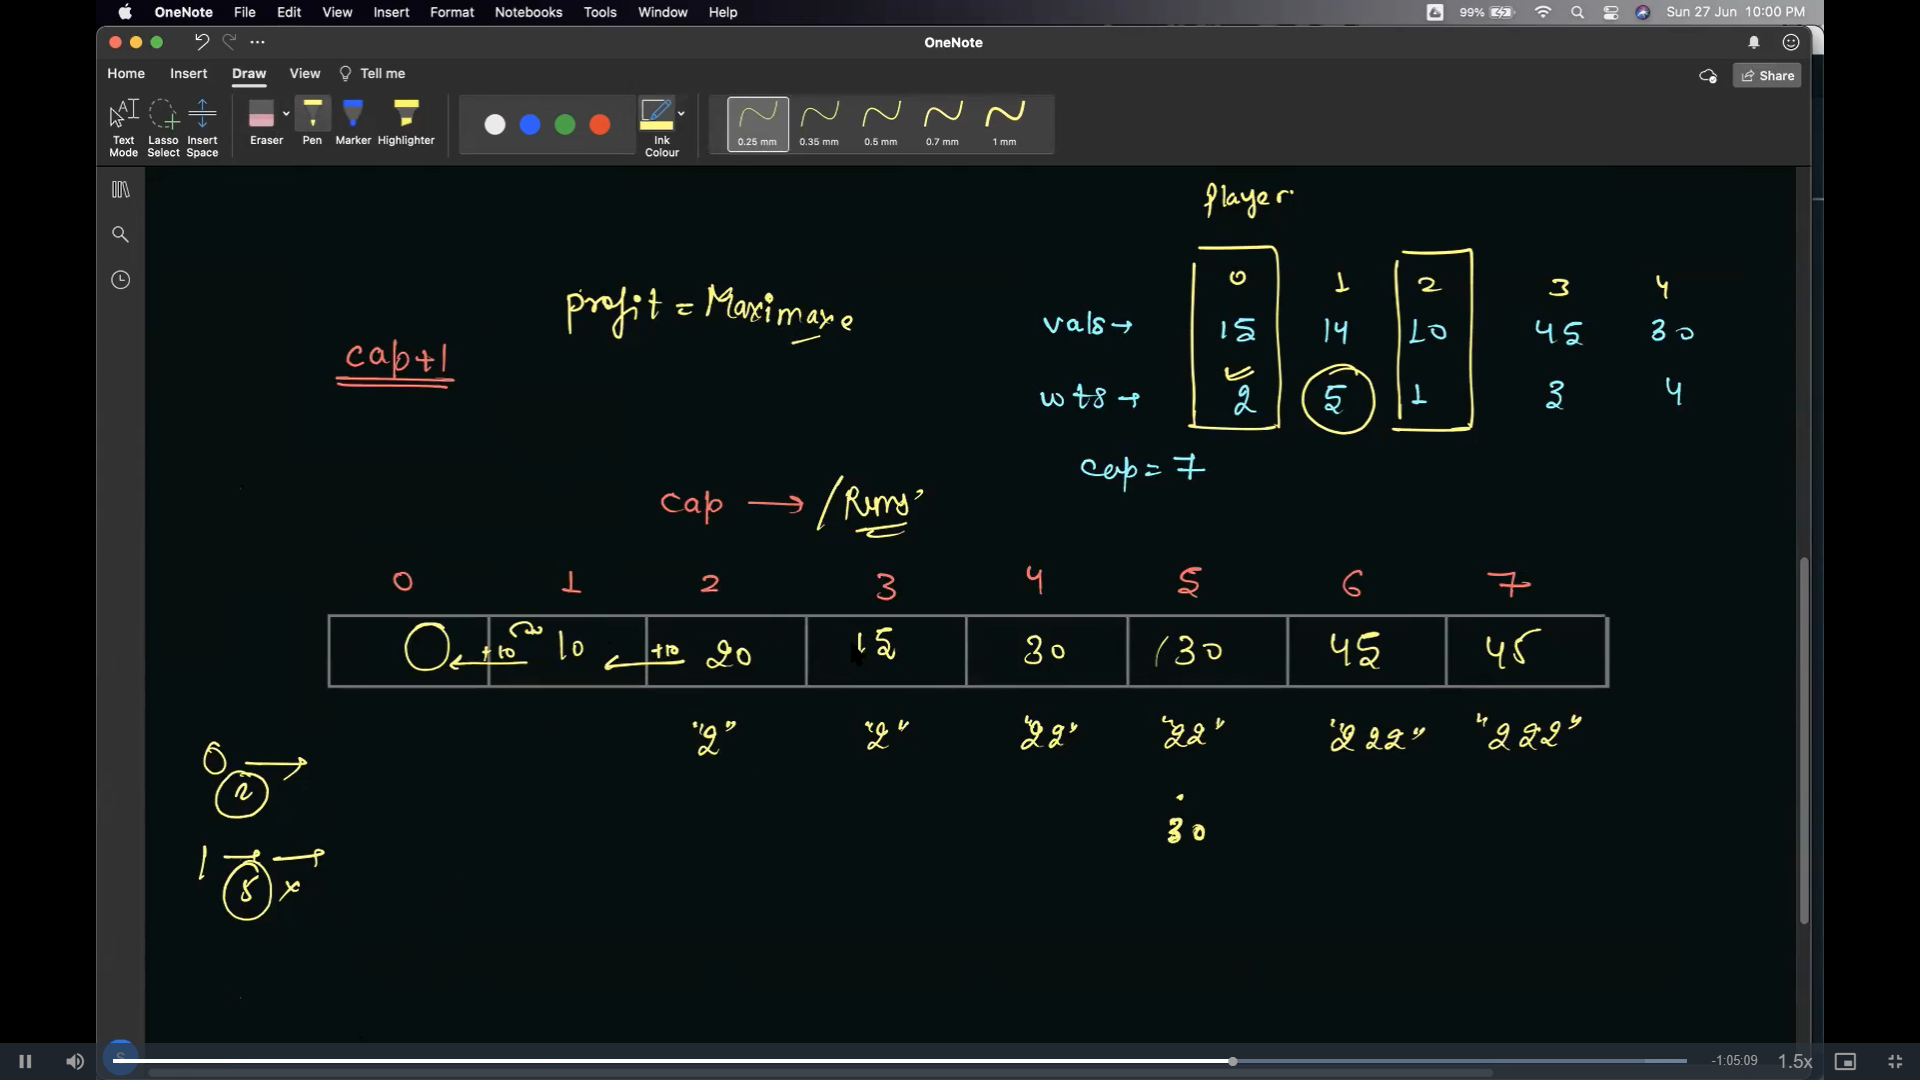 OneNote File Edit View Insert Format Notebooks Tools Window Help 99% Sun 27 Jun 10:00 PM
OneNote
Home Insert Draw View Tell me Share
Text Mode Lasso Select Insert Space Eraser Pen Marker Highlighter Ink Colour 0.25 mm 0.35 mm 0.5 mm 0.7 mm 1 mm
player
0 1 2 3 4
profit = Maximaxe
vals → 15 14 10 45 30
cap+1
wts → 2 5 1 3 4
cap = 7
cap →
0 1 2 3 4 5 6 7
0 +10 10 +10 20 15 30 30 45 45
"2" "2" "22" "22" "222" "222"
0 →
2
30
1 → →
5 x
S
-1:05:09 1.5x